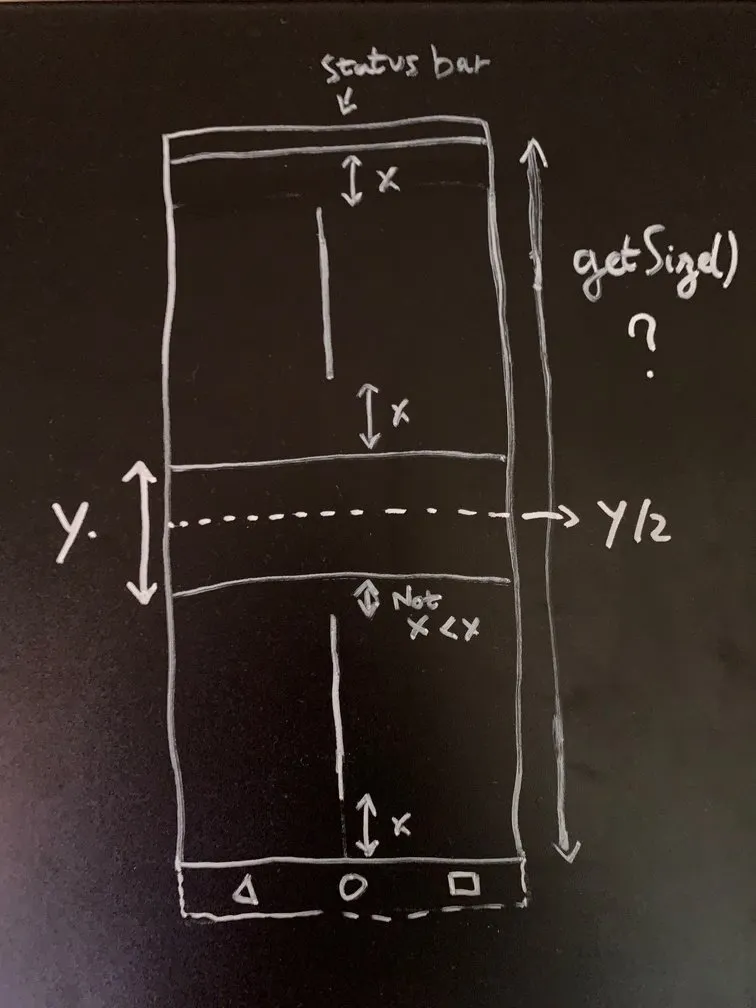 status bar
x
getSize()
?
x
y.
y/2
Not
x < x
x